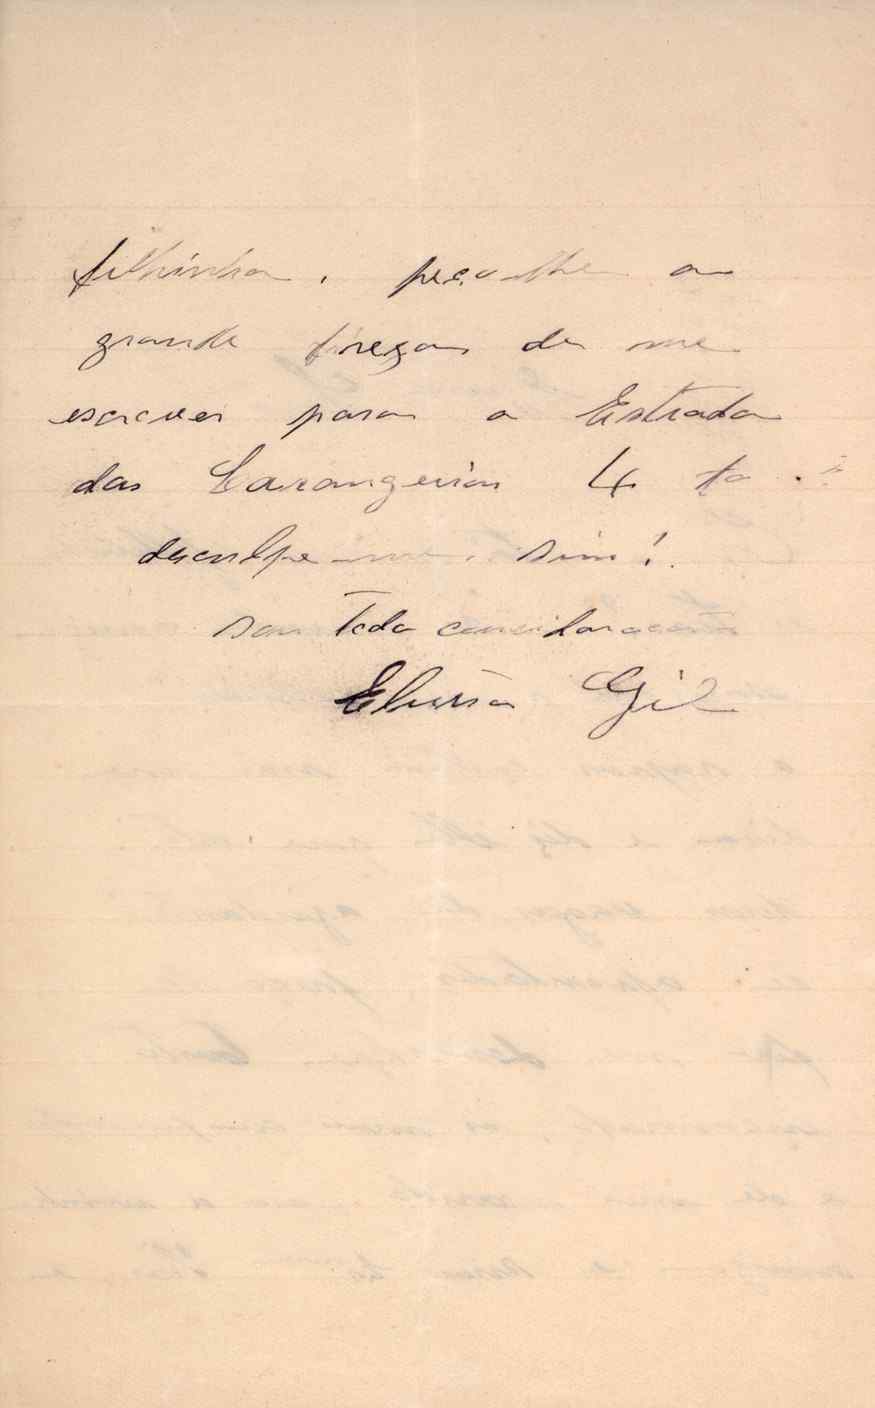 filhinha, peço-lhe a
grande fineza de me
escrever para a Estrada
das Larangeiras 4 to.
desculpe-me, sim!
sou toda consideração
Gil